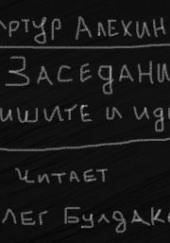 РТУР АЛЕХИН
ЗАСЕДАНИ
ИШИТЕ И ИД
ЧИТАЕТ
ЛЕГ БУЛДАК